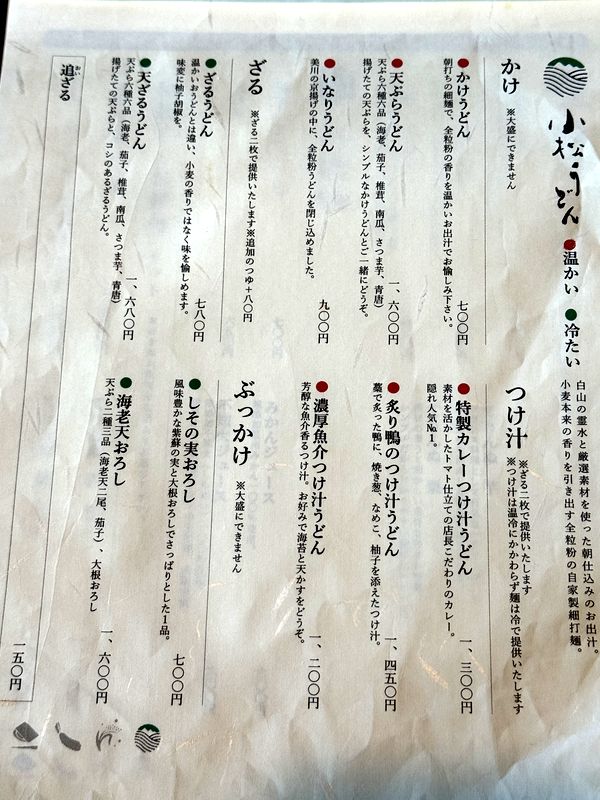 小松うどん
●温かい ●冷たい
白山の霊水と厳選素材を使った朝仕込みのお出汁。
小麦本来の香りを引き出す全粒粉の自家製細打麺。
かけ ※大盛にできません
●かけうどん
朝打ちの細麺で、全粒粉の香りを温かいお出汁でお愉しみ下さい。
七〇〇円
●天ぷらうどん
天ぷら六種六品（海老、茄子、椎茸、南瓜、さつま芋、青唐）
揚げたての天ぷらを、シンプルなかけうどんとご一緒にどうぞ。
一、六〇〇円
●いなりうどん
美川の京揚げの中に、全粒粉うどんを閉じ込めました。
九〇〇円
ざる ※ざる二枚で提供いたします※追加のつゆ+八〇円
●ざるうどん
温かいおうどんとは違い、小麦の香りではなく味を愉しめます。
味変に柚子胡椒を。
七八〇円
●天ざるうどん
天ぷら六種六品（海老、茄子、椎茸、南瓜、さつま芋、青唐）
揚げたての天ぷらと、コシのあるざるうどん。
一、六八〇円
つけ汁 ※ざる二枚で提供いたします
※つけ汁は温冷にかかわらず麺は冷で提供いたします
●特製カレーつけ汁うどん
素材を活かしたトマト仕立ての店長こだわりのカレー。
隠れ人気№1。
一、三〇〇円
●炙り鴨のつけ汁うどん
藁で炙った鴨に、焼き葱、なめこ、柚子を添えたつけ汁。
一、四五〇円
●濃厚魚介つけ汁うどん
芳醇な魚介香るつけ汁。お好みで海苔と天かすをどうぞ。
一、二〇〇円
ぶっかけ ※大盛にできません
●しその実おろし
風味豊かな紫蘇の実と大根おろしでさっぱりとした1品。
七〇〇円
●海老天おろし
天ぷら二種三品（海老天二尾、茄子）、大根おろし
一、六〇〇円
おい
追ざる
一五〇円